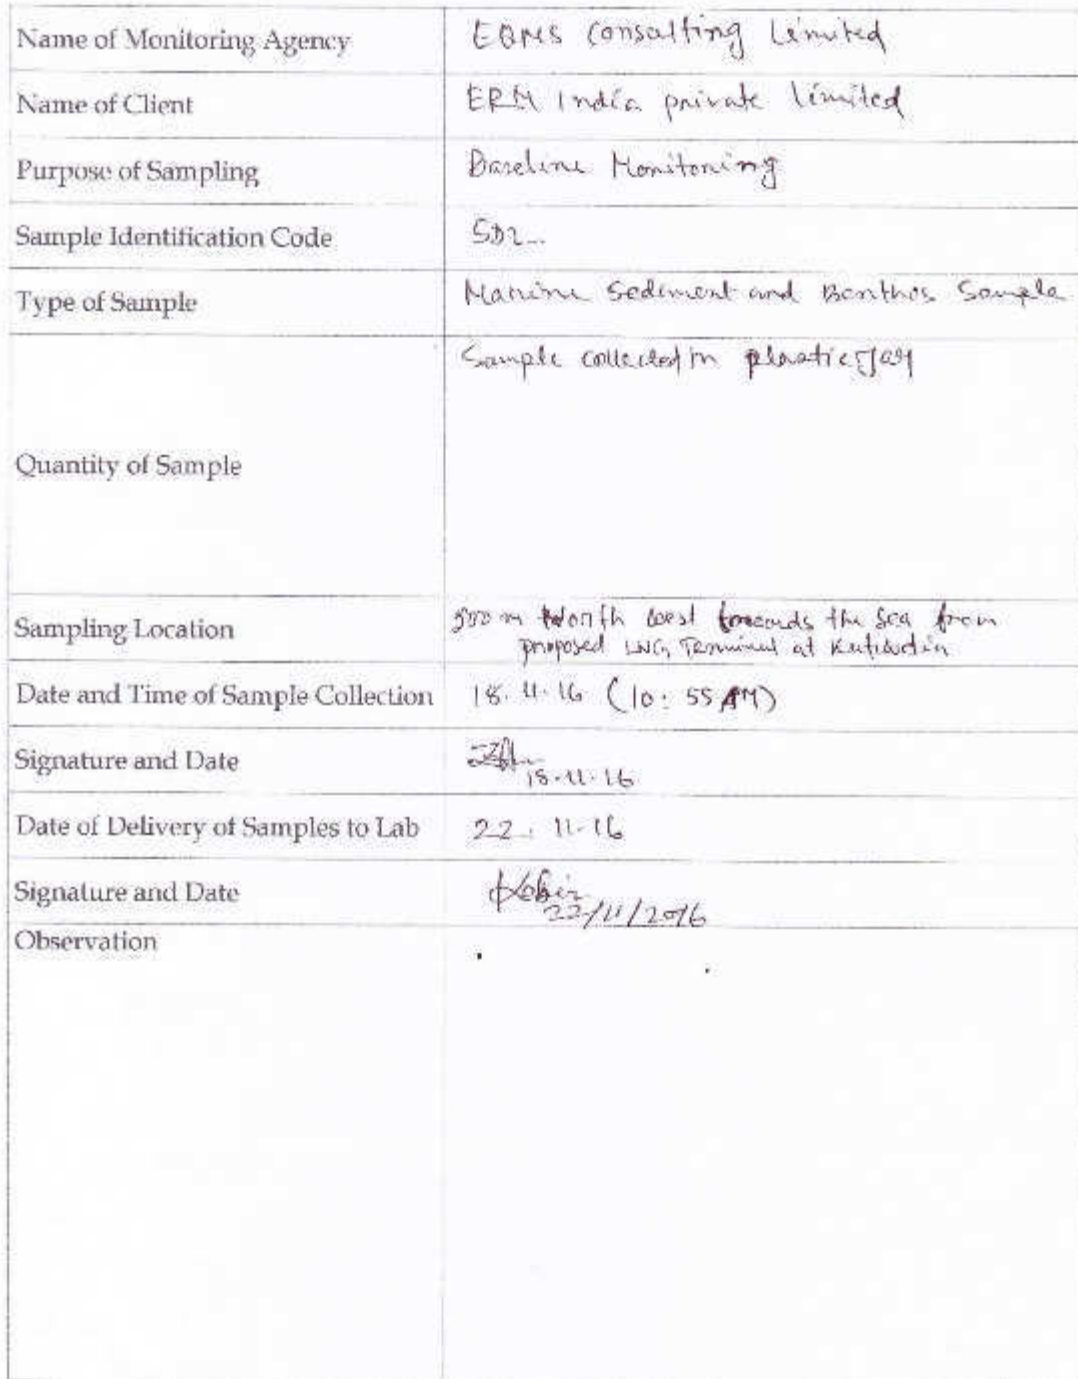 Name of Monitoring Agency EQMS Consulting Limited
Name of Client ERM India private limited
Purpose of Sampling Baseline Monitoring
Sample Identification Code SD2
Type of Sample Marine Sediment and Benthos Sample
Quantity of Sample Sample collected in plastic Jar
Sampling Location 500 m North West towards the Sea from
proposed LNG Terminal at Kutubdia
Date and Time of Sample Collection 18.11.16 (10:55 AM)
Signature and Date
18.11.16
Date of Delivery of Samples to Lab 22.11.16
Signature and Date Kabir
22/11/2016
Observation